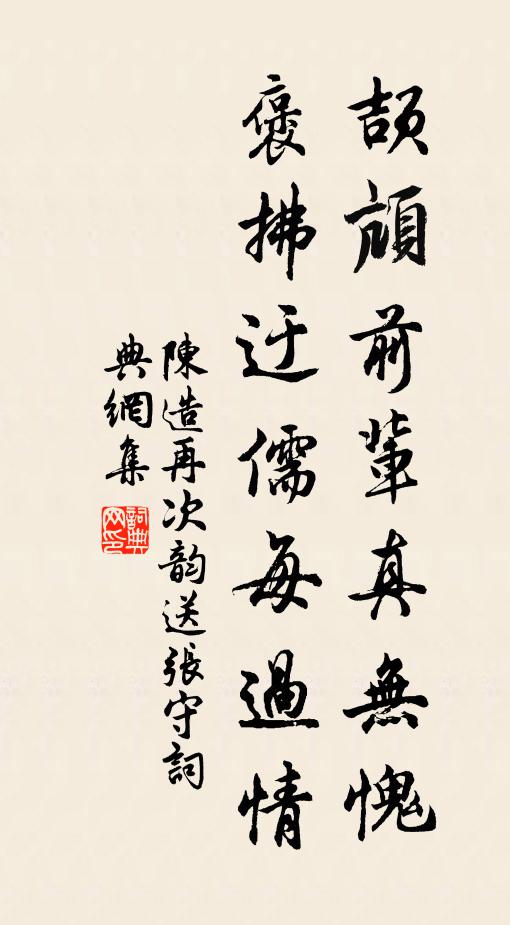 頡頏前輩真無愧
褒拂迂儒每過情
陳造再次韵送張守詞
典網集
詞典网印